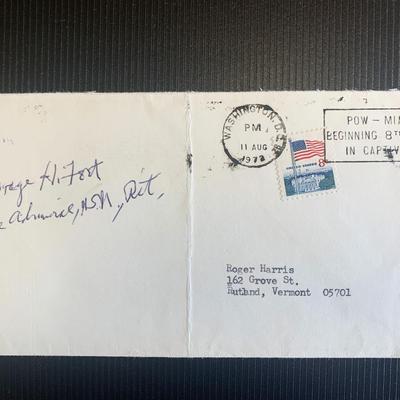 H. Fort
Admiral, USN, Ret.
WASHINGTON, D.C.
PM
11 AUG
1972
POW - MIA
BEGINNING 8TH
IN CAPTIV
UNITED STATES
8c
Roger Harris
162 Grove St.
Rutland, Vermont 05701